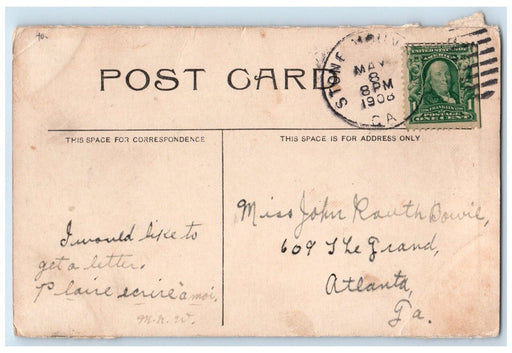 POST CARD
STONE MOUN
MAY
8
8PM
1908
GA
UNITED STATES OF
AMERICA
1 1
POSTAGE
ONE CENT
THIS SPACE FOR CORRESPONDENCE
THIS SPACE IS FOR ADDRESS ONLY
I would like to
get a letter.
Plaire ecrire à moi,
M. R. W.
Miss John Routh Bowie,
609 The Grand,
Atlanta,
Ga.